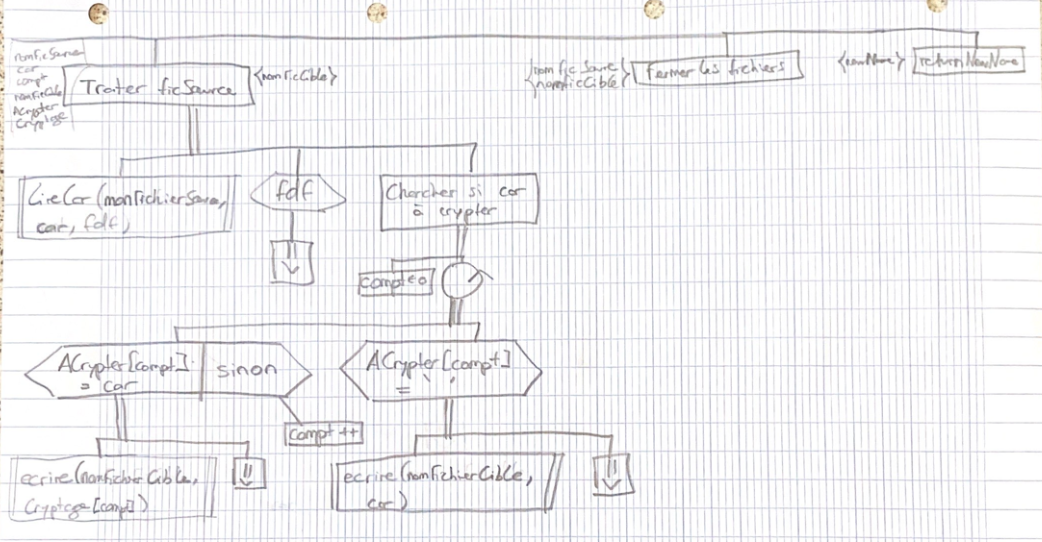 nomficSource
car
compt
nomficCible
ACrypter
Cryptage
Traiter ficSource
{nomficCible}
{nom fic Source
nomficCible}
Fermer les fichiers
{newName}
return NewName
LireCar (monFichierSource,
car, fdf)
fdf
Chercher si car
à crypter
compt←0
ACrypter[compt]
= car
sinon
ACrypter[compt]
= ' '
compt ++
ecrire(nomfichierCible,
Cryptage[compt])
ecrire(nomfichierCible,
car)